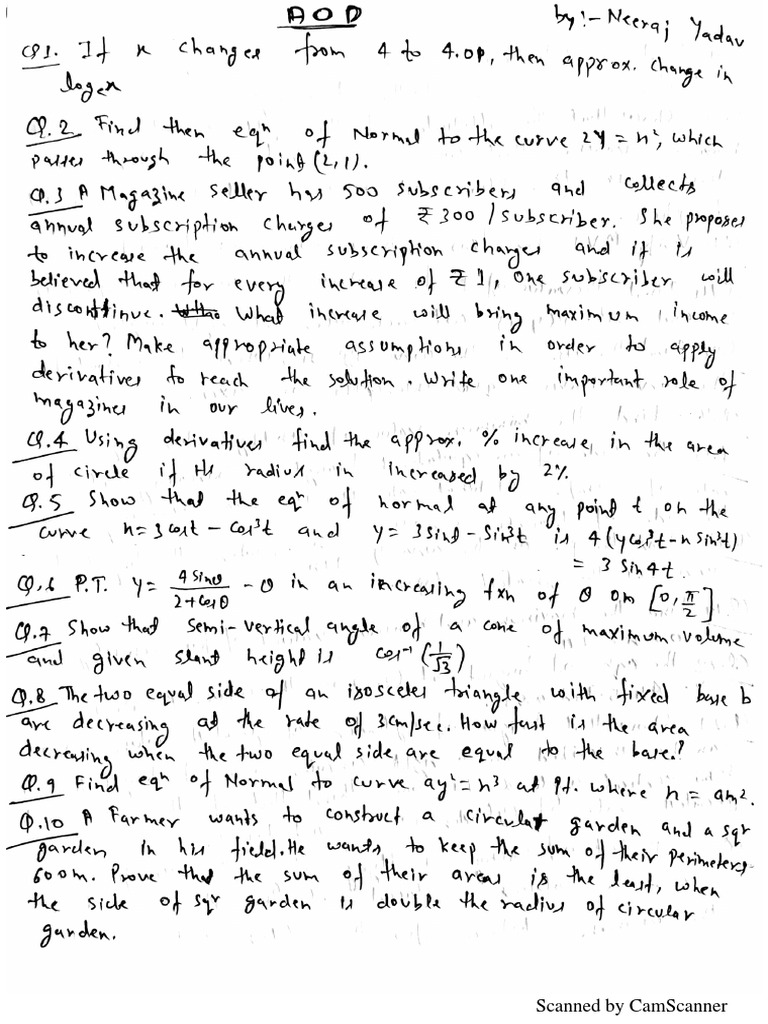 AOD
by:- Neeraj Yadav
Q1. If x changes from 4 to 4.01, then approx. change in
logex
Q.2 Find then eqn of Normal to the curve 2y = x², which
passes through the point (2,1).
Q.3 A Magazine seller has 500 subscribers and collects
annual subscription charges of ₹300/subscriber. She proposes
to increase the annual subscription charges and it is
believed that for every increase of ₹1, one subscriber will
discontinue. What increase will bring maximum income
to her? Make appropriate assumptions in order to apply
derivatives to reach the solution. Write one important role of
magazines in our lives.
Q.4 Using derivatives find the approx. % increase in the area
of circle if its radius in increased by 2%.
Q.5 Show that the eqn of normal at any point t, on the
curve x=3cost – cos³t and y= 3sint – sin³t is 4(ycos³t – x sin³t)
= 3 sin4t.
Q.6 P.T. y= 4sinθ/2+cosθ – θ in an increasing fxn of θ on [0, π/2]
Q.7 Show that semi-vertical angle of a cone of maximum volume
and given slant height is cos⁻¹(1/√3)
Q.8 The two equal side of an isosceles triangle with fixed base b
are decreasing at the rate of 3cm/sec. How fast is the area
decreasing when the two equal side, are equal to the base?
Q.9 Find eqn of Normal to curve ay²=x³ at pt. where x = am².
Q.10 A Farmer wants to construct a circular garden and a sqr
garden in his field. He wants to keep the sum of their perimeters
600m. Prove that the sum of their areas is the least, when
the side of sqr garden is double the radius of circular
garden.
Scanned by CamScanner